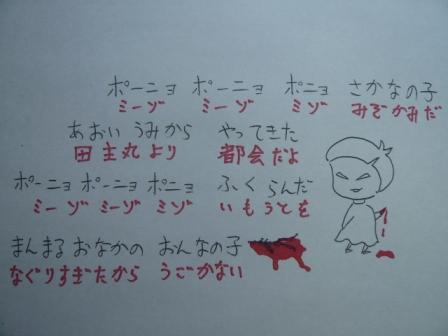 ポーニョ ポーニョ ポニョ さかなの子
ミーゾ ミーゾ ミゾ みぞかみだ
あおい うみから やってきた
田主丸より 都会だよ
ポーニョ ポーニョ ポニョ ふくらんだ
ミーゾ ミーゾ ミゾ いもうとを
まんまる おなかの おんなの子
なぐりすぎたから うごかない